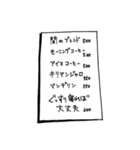 闇のブレンド 500
モーニングコーヒー 500
アイスコーヒー 500
キリマンジャロ 550
マンデリン 550
ぐっすり寝れば
大丈夫 200